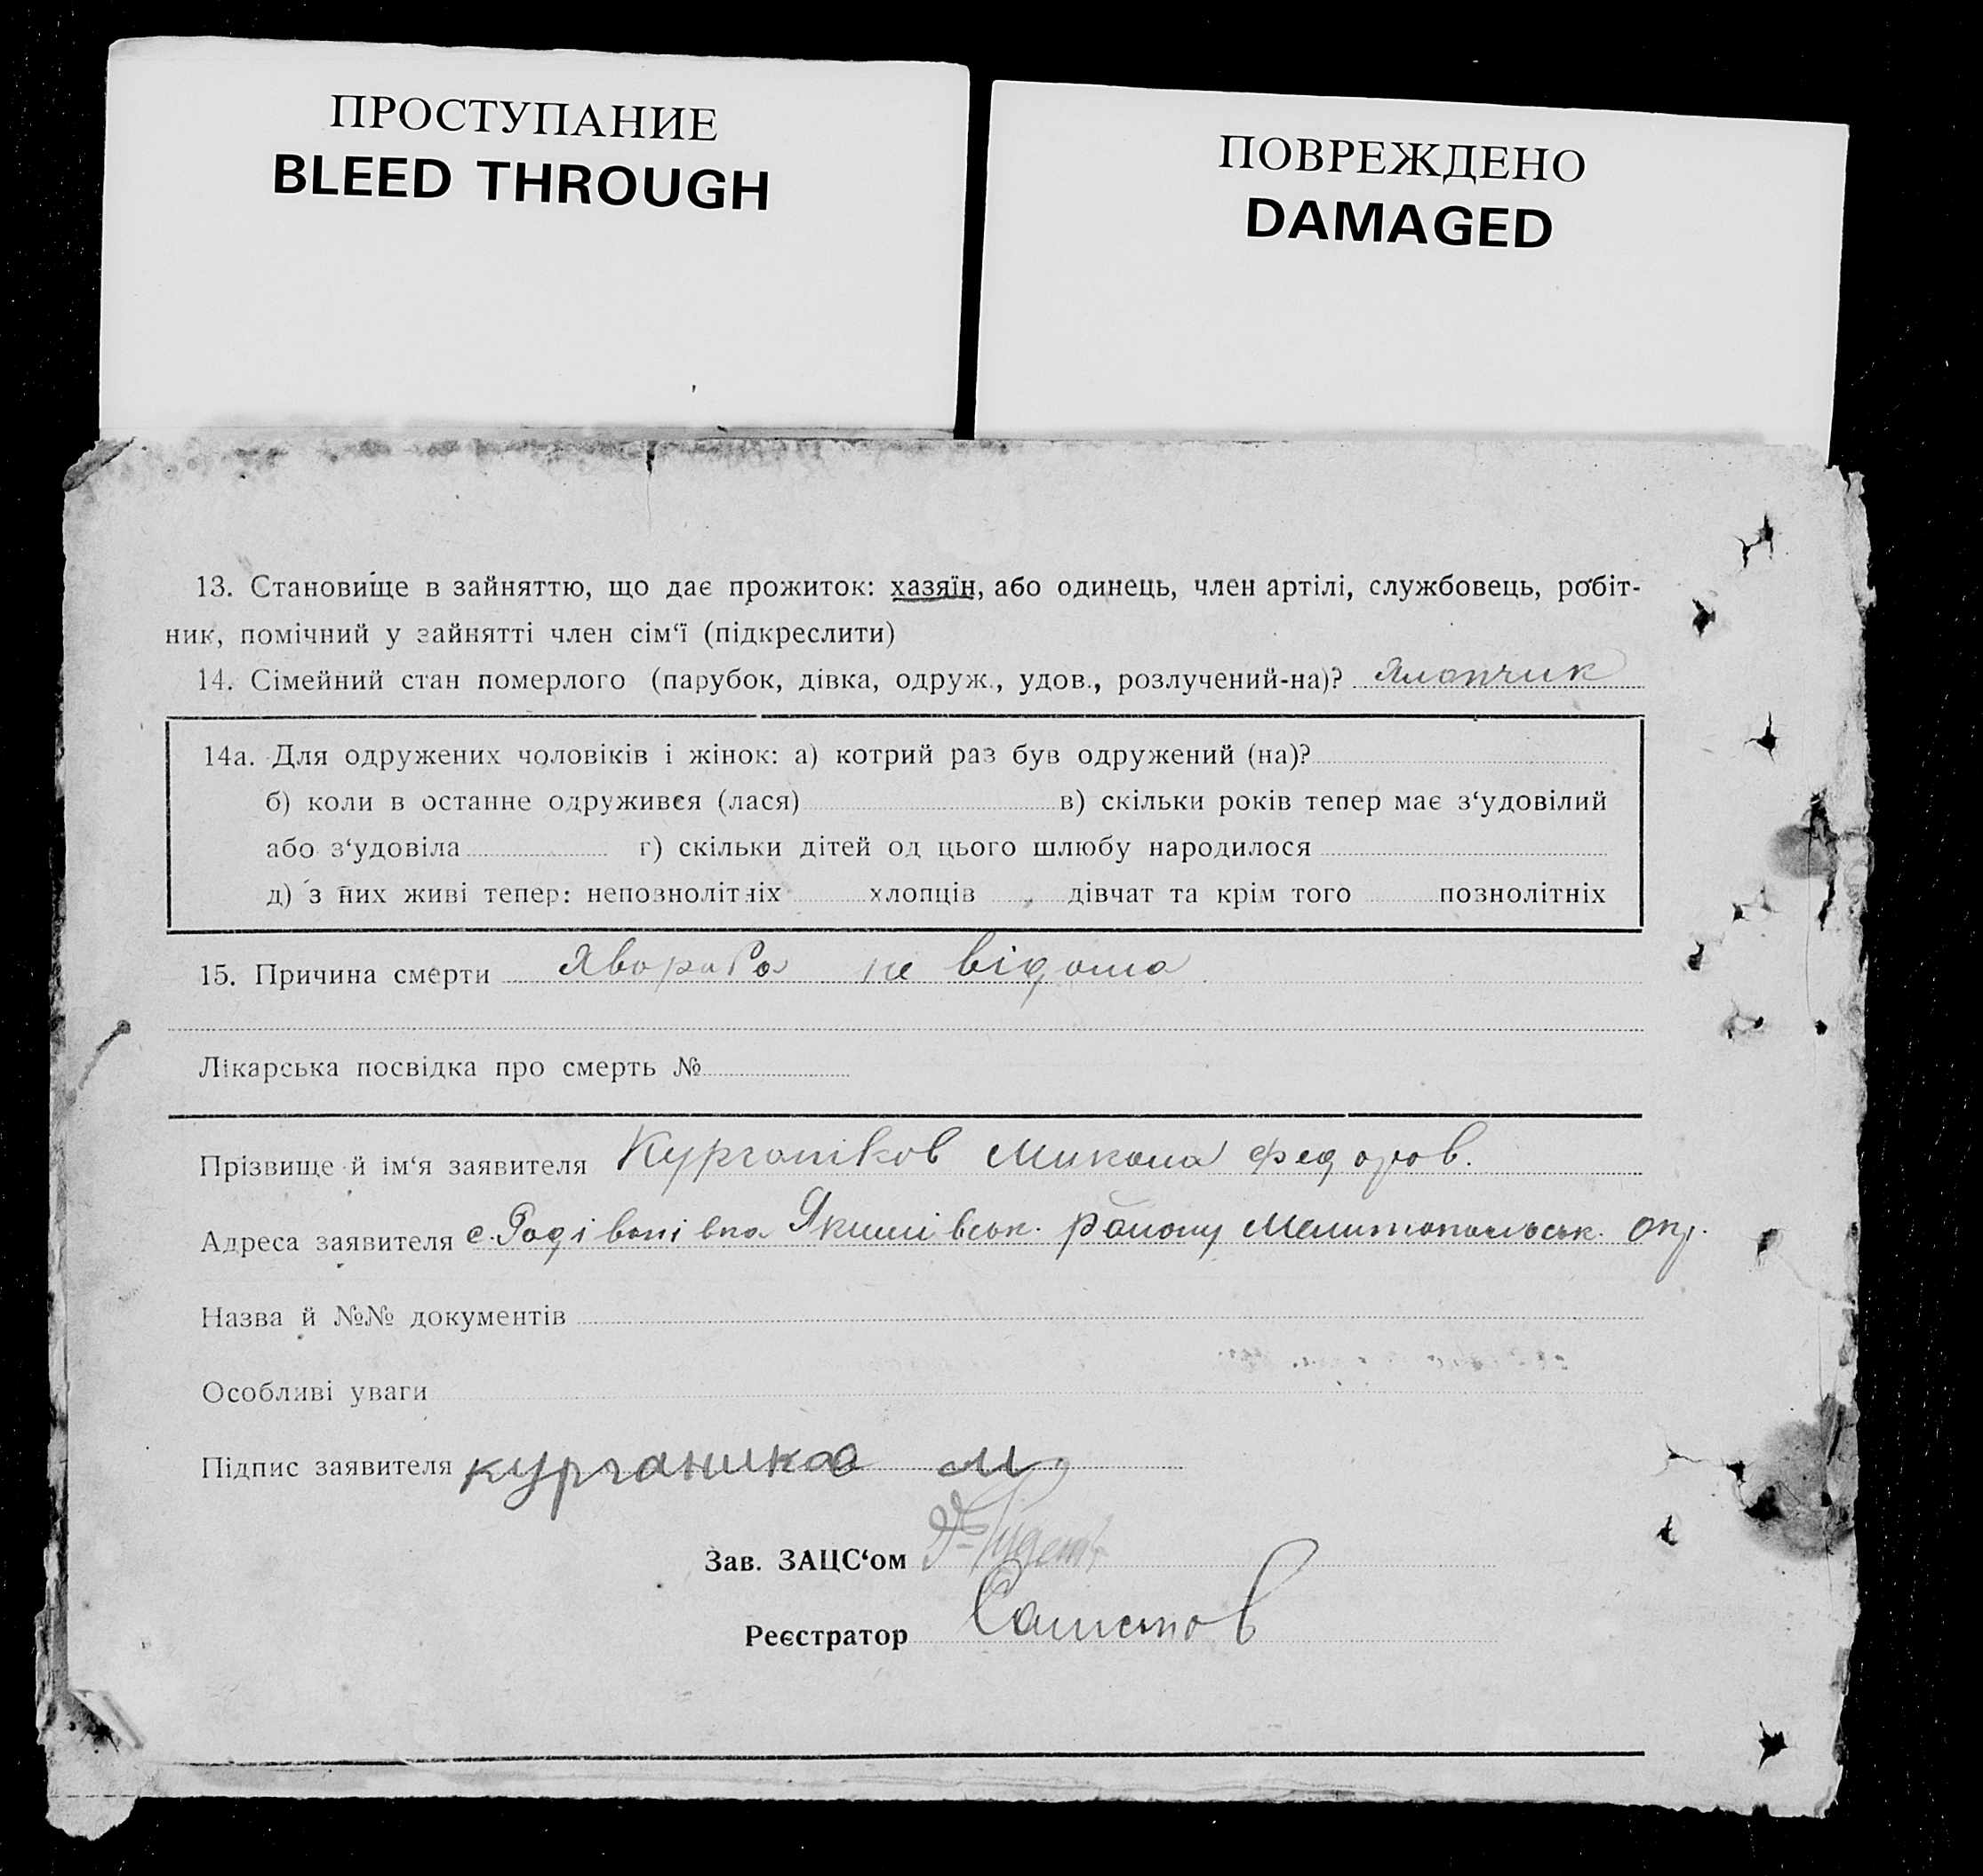 ПРОСТУПАНИЕ
BLEED THROUGH
ПОВРЕЖДЕНО
DAMAGED
13. Становище в зайняттю, що дає прожиток: хазяїн, або одинець, член артілі, службовець, робіт-
ник, помічний у зайнятті член сім‘ї (підкреслити)
14. Сімейний стан померлого (парубок, дівка, одруж., удов., розлучений-на)? Хлопчик
14а. Для одружених чоловіків і жінок: а) котрий раз був одружений (на)?
б) коли в останне одружився (лася) в) скільки років тепер має з‘удовілий
або з‘удовіла г) скільки дітей од цього шлюбу народилося
д) з них живі тепер: непознолітніх хлопців , дівчат та крім того познолітніх
15. Причина смерти Хвороба не відома
Лікарська посвідка про смерть №
Прізвище й ім‘я заявителя Курганіков Микола Федоров.
Адреса заявителя с. Родівонівка Якимівськ. району Мелитопольськ. окр.
Назва й №№ документів
Особливі уваги
Підпис заявителя кургаников М
Зав. ЗАЦС‘ом
Реєстратор